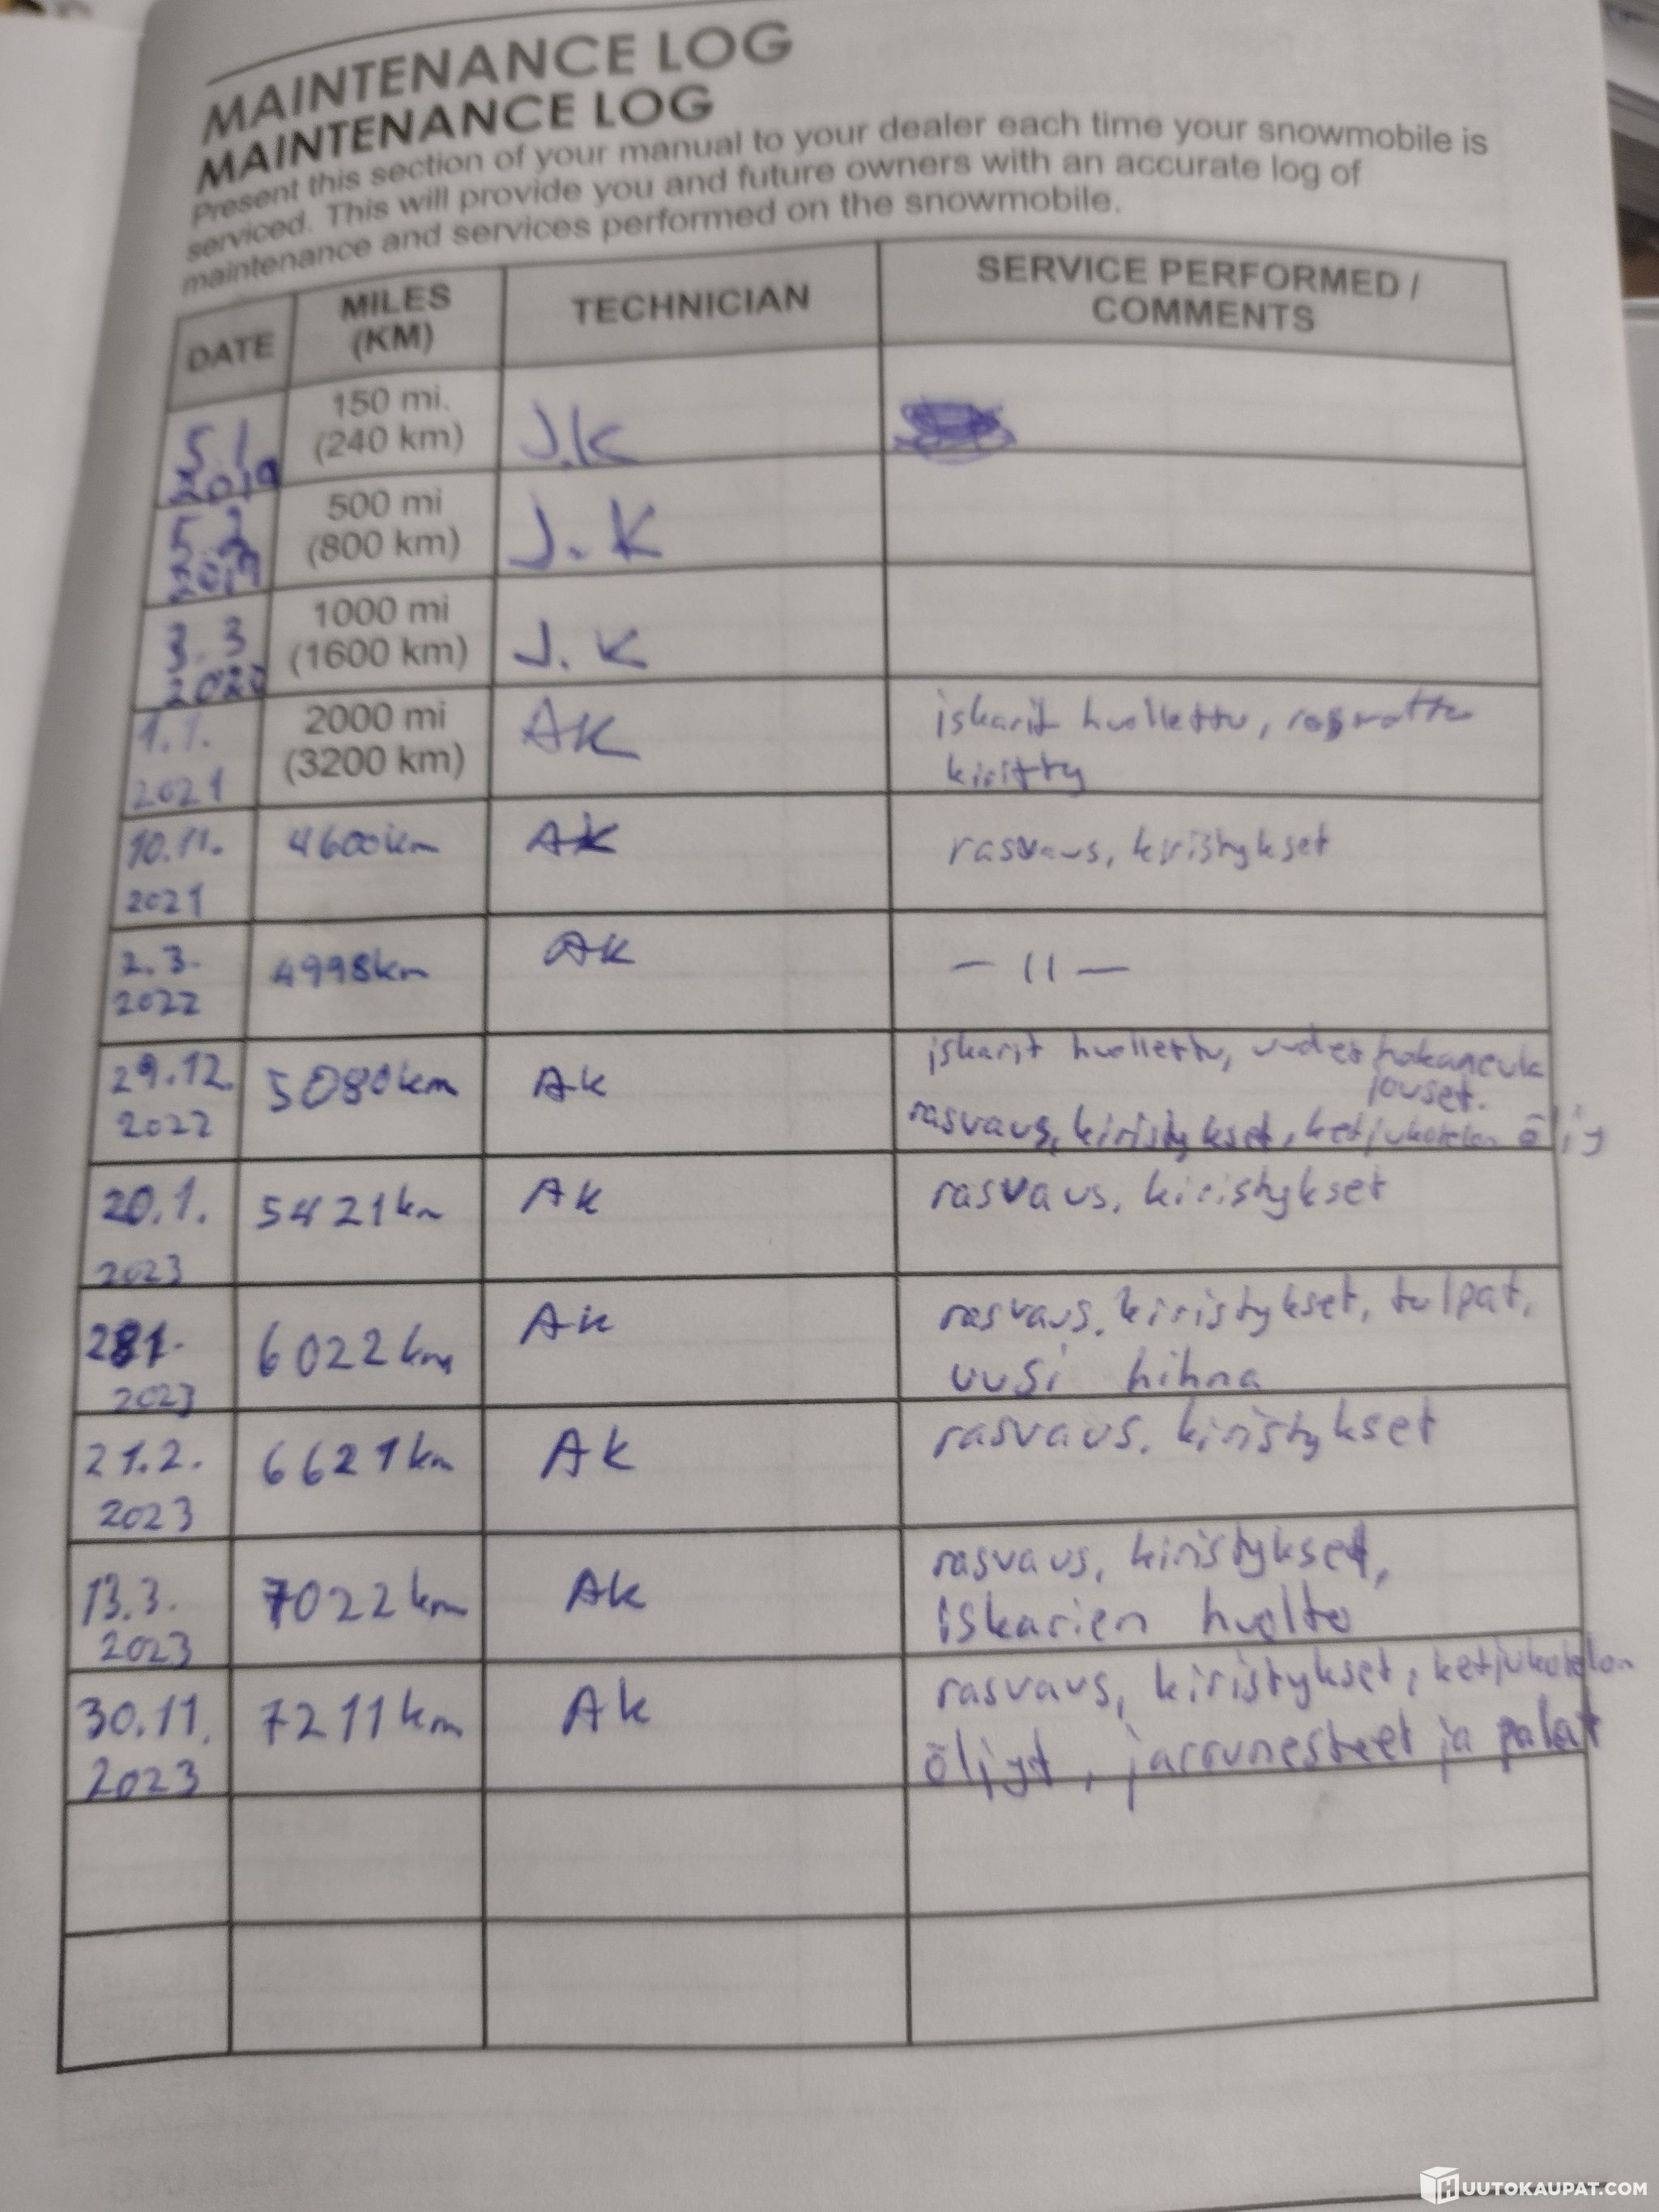 MAINTENANCE LOG
MAINTENANCE LOG
Present this section of your manual to your dealer each time your snowmobile is
serviced. This will provide you and future owners with an accurate log of
maintenance and services performed on the snowmobile.
DATE
MILES
(KM)
TECHNICIAN
SERVICE PERFORMED /
COMMENTS
5.1
2019
150 mi.
(240 km)
J.K
5.2
2019
500 mi
(800 km)
J.K
3.3
2020
1000 mi
(1600 km)
J.K
1.1.
2021
2000 mi
(3200 km)
AK
iskarit huollettu,
kiristty
10.11.
2021
4600km
AK
rasvaus, kiristykset
2.3.
2022
4998km
AK
— 11 —
29.12.
2022
5080km
AK
iskarit huollettu, uudet
jouset.
rasvaus, kiristykset, ketjukotelon öljy
20.1.
2023
5421km
AK
rasvaus, kiristykset
281.
2023
6022km
AK
rasvaus, kiristykset, tulpat,
uusi hihna
21.2.
2023
6621km
AK
rasvaus, kiristykset
13.3.
2023
7022km
AK
rasvaus, kiristykset,
iskarien huolto
30.11.
2023
7211km
AK
rasvaus, kiristykset, ketjukotelon
öljyt, jarrunesteet ja palat
HUUTOKAUPAT.COM